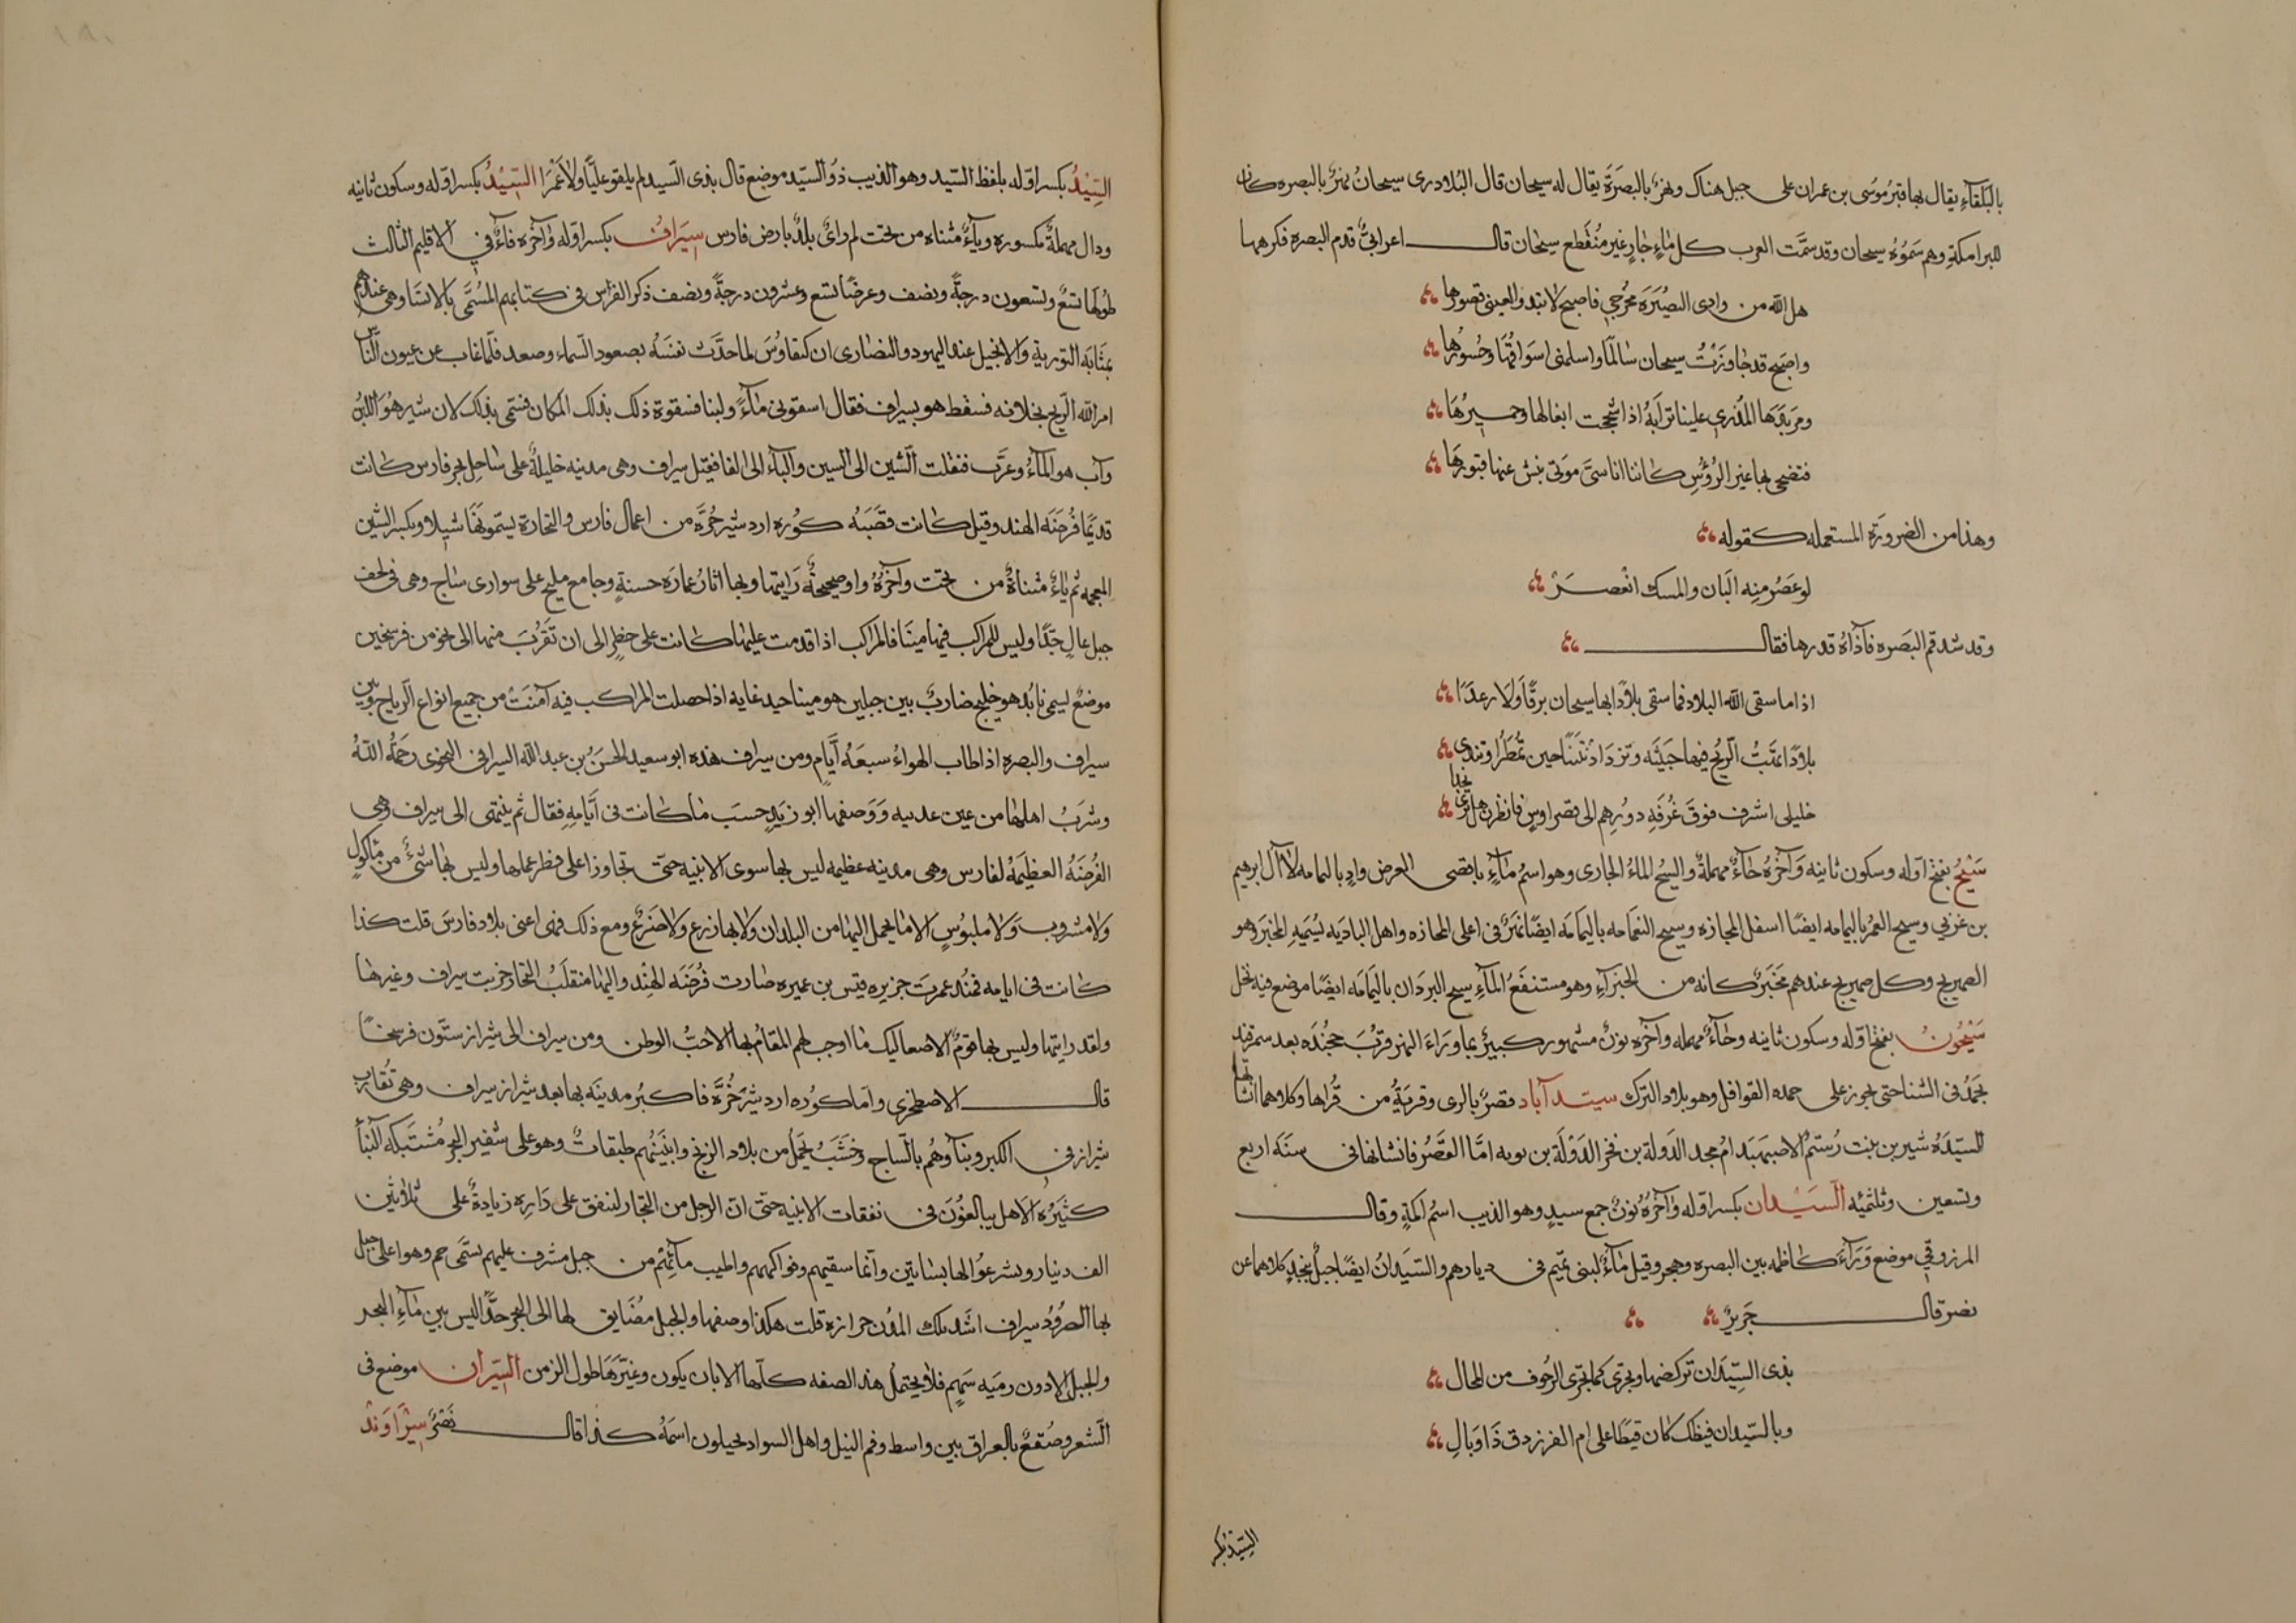 بالبلقآءِ يقال بها قبرُ موُسَى بن عمران على جبل هناك ونهرٌ بالبصَرَة يقال له سيحان قال البُلاذرى سيحانُ نهرٌ بالبصره كان
للبرامكةِ وهم سَمَّوُهُ سيحان وقد سمَّت العرب كل مَاءٍ جَارٍ غير مُنقطع سيحان قال اعرابىٌّ قدم البصره فكرهها
هل الله من وادى البصُيَرَة مُخرجى فاصبح لا تبدو لعينى قصورُها
واصبح قد جَاوَزتُ سيحان سَالمًا واسلمنى اسوَاقُهَا وجُسورُهَا
ومَربَدهَا المُذرى علينا ترابَهُ اذا شحجت ابغالها وحميرُهَا
فنضحى بها غبر الرُؤسِ كاننا اناسىُّ موتى نبش عنها قبورهَا
وهذا من الضرورَة المستعمله كقوله
لو عصُر منه البَان والمسك انْعصَرْ
وقد قدم البصَره فآذاهُ قذرها فقال
اذا ما سقى الله البلاد فما سقى بلادًا بها سيحان برقًا وَلا رعدَا
بلادًا تهَبُّ الرّيحُ فيها خبيثه وتزدَادُ نتنًا حين تمُطَرُ او تندى
خليلى اشرف فوقَ غُرفَه دورهم الى قصر اوسٍ فانظرن هل ترى نجدا
سَيْحُ بفتح اوّله وسكون ثانيه وَآخرُهُ حَآءٌ مهملةٌ والسيحُ الماءُ الجارى وهو اسمُ مَآءٍ باقصى العرض وادٍ باليمامه لآل ابرهيم
بن عربي وسيح الغمرُ باليمامه ايضًا اسفل المجازه وسيح النعَامه باليمَامه ايضًا نهَرٌ فى اعلى المجازه واهل الباديَه يُسَمّيهِ المخبَر وهو
الصهريج وكل صهريج عندهم مَخبَرٌ كانه من الخبرآءِ وهو مستنقَعُ المَآءِ سيح البردَان باليمَامه ايضًا موضع فيه نخل
سَيْحُونُ بفتح اوّله وسكون ثانيه وحَآءٌ مهمله وآخرُه نونٌ نهر مشهور كبيرٌ بما ورَآءَ النهر قرُبَ خجُندَه بعد سمرقند
يجمُدُ فى الشتا حتى تجوز على جمده القوافل وهو بلاد الترك سيدآباد قصرٌ بالرى وقريَةٌ من قُراها وكلاهما انشاتها
السيّدَهُ شيرين بنت رُستم الاصبهبَد امُ مجد الدَولة بن فخر الدَوْلَة بن بويه امّا القصَرُ فانشاتهَا فى سنَه اربع
وتسعين وثلثمئِه السّيْدان بكسر اوّله وَآخرُهُ نونٌ جمع سيدٍ وهو الذيب اسمُ اكمةٍ وقال
المرزوقى موضع وَرَآءَ كاظمه بين البصره وهجر وقيل مَآءٌ لبنى تميم فى ديارهم والسّيدانُ ايضًا جبلٌ بنجدٍ كلاهما عن
نصر قال جَريرٌ
بذى السّيدَان تركضها وتجرى كما تجرى الرجُوف من المحال
وبالسّيدان قيظك كان قيظًا على ام الفرزدق ذَا وَبَالِ
السّيْدُ بكسر
السّيْدُ بكسر اوّله بلفظ السّيد وهو الذيب ذوُ السّيد موضع قال بذى السّيد لم يلقو عليًّا ولا عَمْرَا السّيْدُ بكسر اوّله وسكون ثانيه
ودال مهملةٌ مكسوره ويآءٌ مثناه من تحت ثم راىٌ بلدٌ بارض فارس سيَرافُ بكسر اوّله وَآخرُه فآءٌ فى الاقليم الثالث
طوُلها تسَعٌ وتسعون درجةً ونصف وعرضًا تسع وعشرون درجةً ونصف ذكر الفرس فى كتابهم المُسَمَّى بالابستَا وهى عندهم
بمثَابَه التوريةِ والانجيل عند اليهود والنصَارى ان كيقاوُسَ لما حدّث نفسَهُ بصعود السّماء وصعد فلمّا غاب عن عيون النّاس
امر الله الرّيح بخلافه فسقط هو بسيراف فقال اسقونى مآءً ولبنا فسقوه ذلك بذلك المكان فسُمّى بذلك لان شير هُوَ اللبَنُ
وآب هو المآءُ وعرّب فنقلت الشّين الى السين والبآء الى الفا فقيل سيراف وهى مدينه جليلهٌ على سَاحِل بحر فارس كانت
قديمًا فُرضَه الهند وقيل كانت قصَبَه كوُره اردشير خُرَّه من اعمال فارس والتجارة يسمّونهَا شيلاو بكسر الشين
المعجمه ثم يَاءٌ مثناةٌ من تحت وآخرُهُ واو صحيحةٌ رَايتها وبها اثارُ عمارَه حسنةٍ وجامع مليح على سوارى ساج وهى فى لحف
جبل عالٍ جدًّا وليس للمراكب فيها مينَا فالمراكب اذا قدمت عليها كانت على خطر الى ان تَقرُبَ منها الى نحو من فرسخين
موضعٌ يسمى نابُد هو خليج ضاربٌ بين جبلين هو مينا جيد غايه اذا حصلت المراكب فيه آمنَتْ من جميع انواع الريّاح وبين
سيراف والبصره اذا طاب الهواءُ سبعَهُ أيَّامٍ ومن سيراف هذه ابو سعيد الحسَنُ بن عبد الله السيرافى النحوى رحَمهُ اللهُ
وشربُ اهلها من عين عذبه وَوَصفها ابو زيَدٍ حسَبَ مَا كانت فى أيّامهِ فقال ثم ينتهى الى سيراف وهى
الفُرضَهُ العظيمَهُ لفارس وهى مدينه عظيمه ليس بها سوى الابنيه حتّى تجاوز على نظر عملها وليس بها شىءٌ من مأكولٍ
ولا مشروب وَلا ملبوُسٍ الا مَا يحمل اليها من البلدان ولا بها زرع ولا ضَرعٌ ومع ذلك فهى اعنى بلاد فارسَ قلت كذا
كانت فى ايامه فمُنذ عمرت جزيره قيس بن عميره صارت فُرضَه الهِنْد واليها منقلَبُ التجار خربت سيراف وغيرهَا
ولقد رايتها وليس بها قومٌ الا صعاليك مَا اوجب لهم المقامُ بها الا حبُّ الوطن ومن سيراف الى شيراز ستّون فرسخًا
قال الاصطخرى وامّا كوُره اردشير خُرَّه فاكبرُ مدينَه بها بعد شيراز سيراف وهى تُقارِبُ
شيراز فى الكبر وبنآوهُم بالسّاج وخَشَبٌ يحمَلُ من بلاد الزنج وابنيَتُهم طبقاتٌ وهو على شفير البحر مُشتَبكه البَنا
كثيَرُه الاهل يبالغُوُن فى نفقات الابنيه حتّى انّ الرجل من التجار لينفق على دَارِه زيادةً على ثلاثين
الف دينار ويشرعُوا لها بسَاتين وانّما سقيهم وفواكههم واطيب مآئِهم من جبل مشرف عليهم يسمَّى جم وهو اعلى جبل
بها الصرُودُ وسيراف اشد تلك المدُن حرازه قلت هكذا وصفها والجبل مُضَايق لها الى البحر جدًّا ليس بين مَآءِ البحر
والجبل الا دون رميَه سَهمٍ فلا يحتملُ هذه الصفه كلّها الا بان يكون وغيّرَهَا طول الزمن السّيران موضع فى
الشّعر وصُقعٌ بالعراق بين واسط وفم النيل واهل السواد يحيلون اسمَهُ كذا قال نَصْرٌ سِيْرَاوَنْدُ